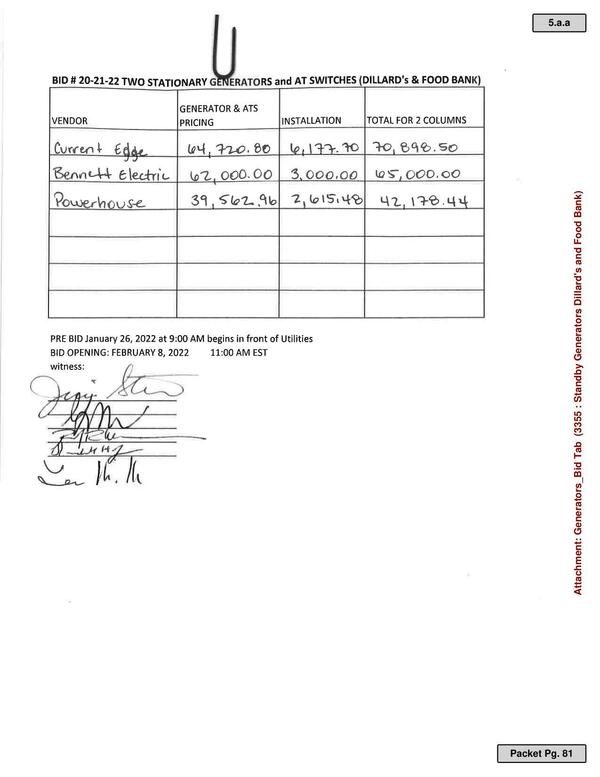 5.a.a
BID # 20-21-22 TWO STATIONARY GENERATORS and AT SWITCHES (DILLARD's & FOOD BANK)
VENDOR GENERATOR & ATS PRICING INSTALLATION TOTAL FOR 2 COLUMNS
Current Edge 64,720.80 6,177.70 70,898.50
Bennett Electric 62,000.00 3,000.00 65,000.00
Powerhouse 39,562.96 2,615.48 42,178.44
PRE BID January 26, 2022 at 9:00 AM begins in front of Utilities
BID OPENING: FEBRUARY 8, 2022 11:00 AM EST
witness:
Attachment: Generators_Bid Tab (3355 : Standby Generators Dillard's and Food Bank)
Packet Pg. 81